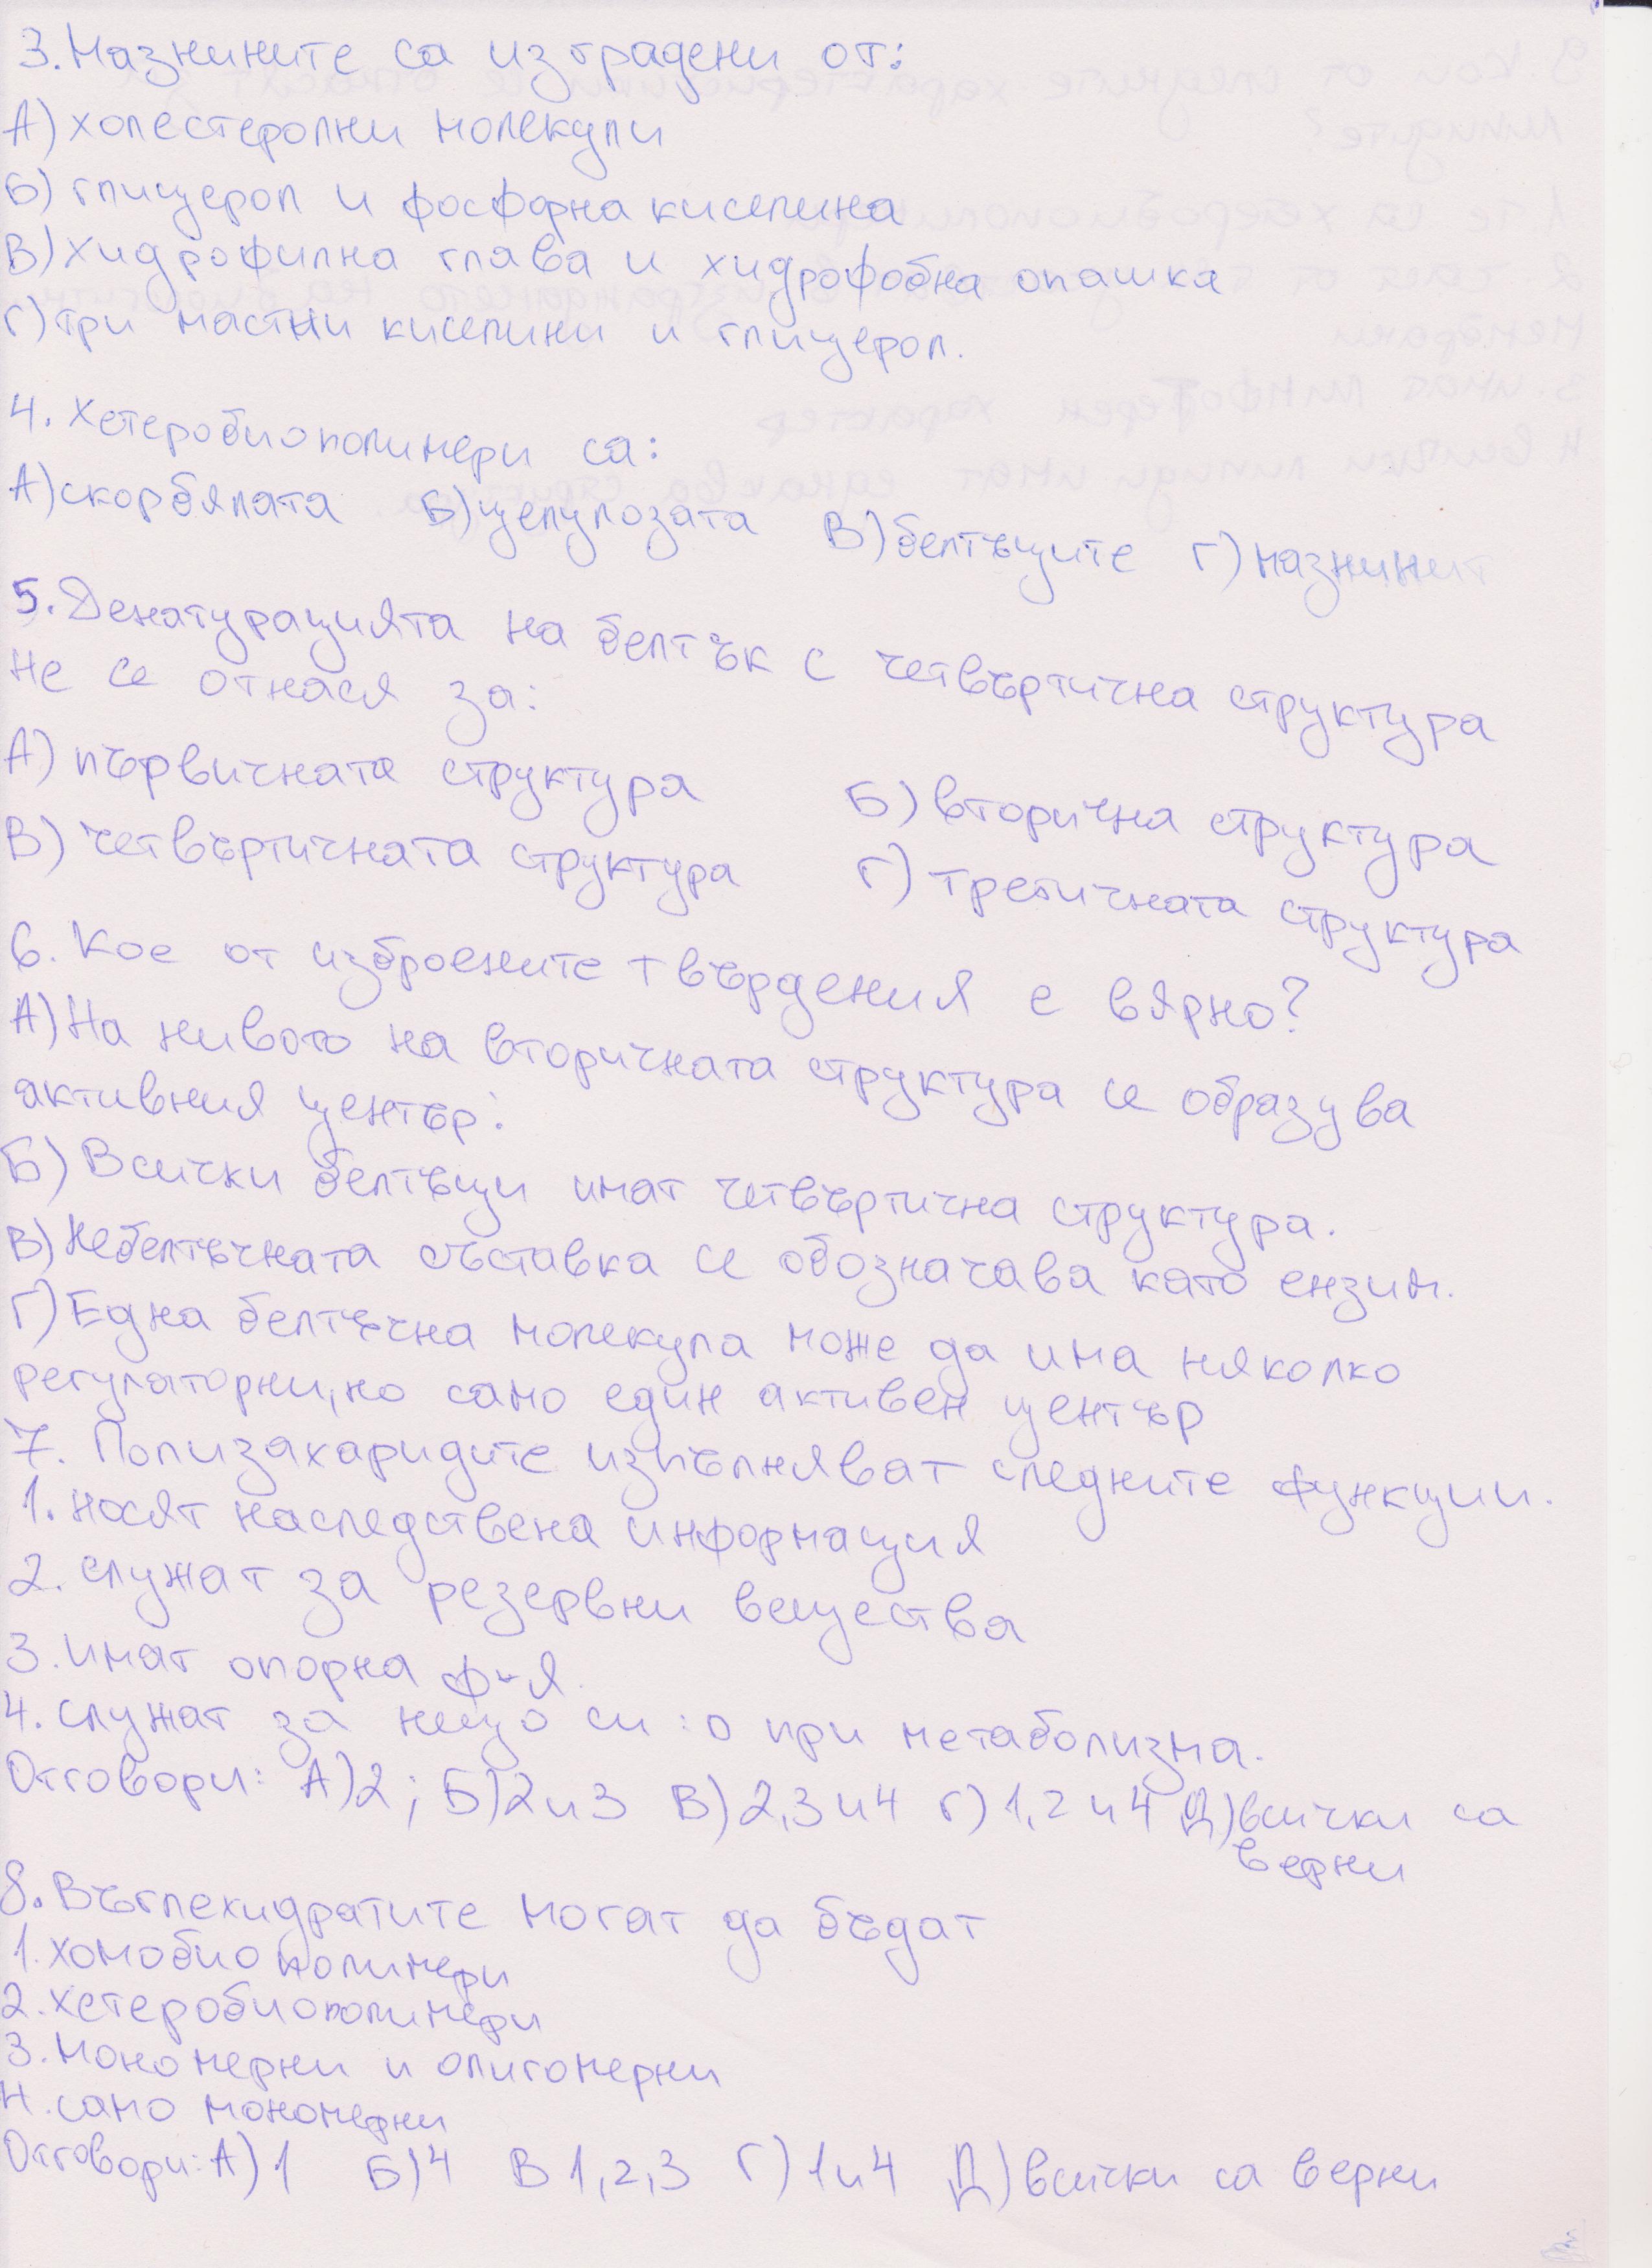 3. Мазнините са изградени от:
А) холестеролни молекули
Б) глицерол и фосфорна киселина
В) хидрофилна глава и хидрофобна опашка
Г) три мастни киселини и глицерол.
4. Хетеробиополимери са:
А) скорбялата Б) целулозата В) белтъците Г) мазнинит
5. Денатурацията на белтък с четвъртична структура
не се отнася за:
А) първичната структура Б) вторична структура
В) четвъртичната структура Г) третичната структура
6. Кое от изброените твърдения е вярно?
А) На нивото на вторичната структура се образува
активния център.
Б) Всички белтъци имат четвъртична структура.
В) Небелтъчната съставка се обозначава като ензим.
Г) Една белтъчна молекула може да има няколко
регулаторни, но само един активен център
7. Полизахаридите изпълняват следните функции.
1. носят наследствена информация
2. служат за резервни вещества
3. имат опорна ф-я.
4. служат за нещо си :о при метаболизма.
Отговори: А) 2; Б) 2 и 3 В) 2,3 и 4 Г) 1,2 и 4 Д) всички са
верни
8. Въглехидратите могат да бъдат
1. хомобиополимери
2. хетеробиополимери
3. мономерни и олигомерни
4. само мономерни
Отговори: А) 1 Б) 4 В 1,2,3 Г) 1 и 4 Д) всички са верни